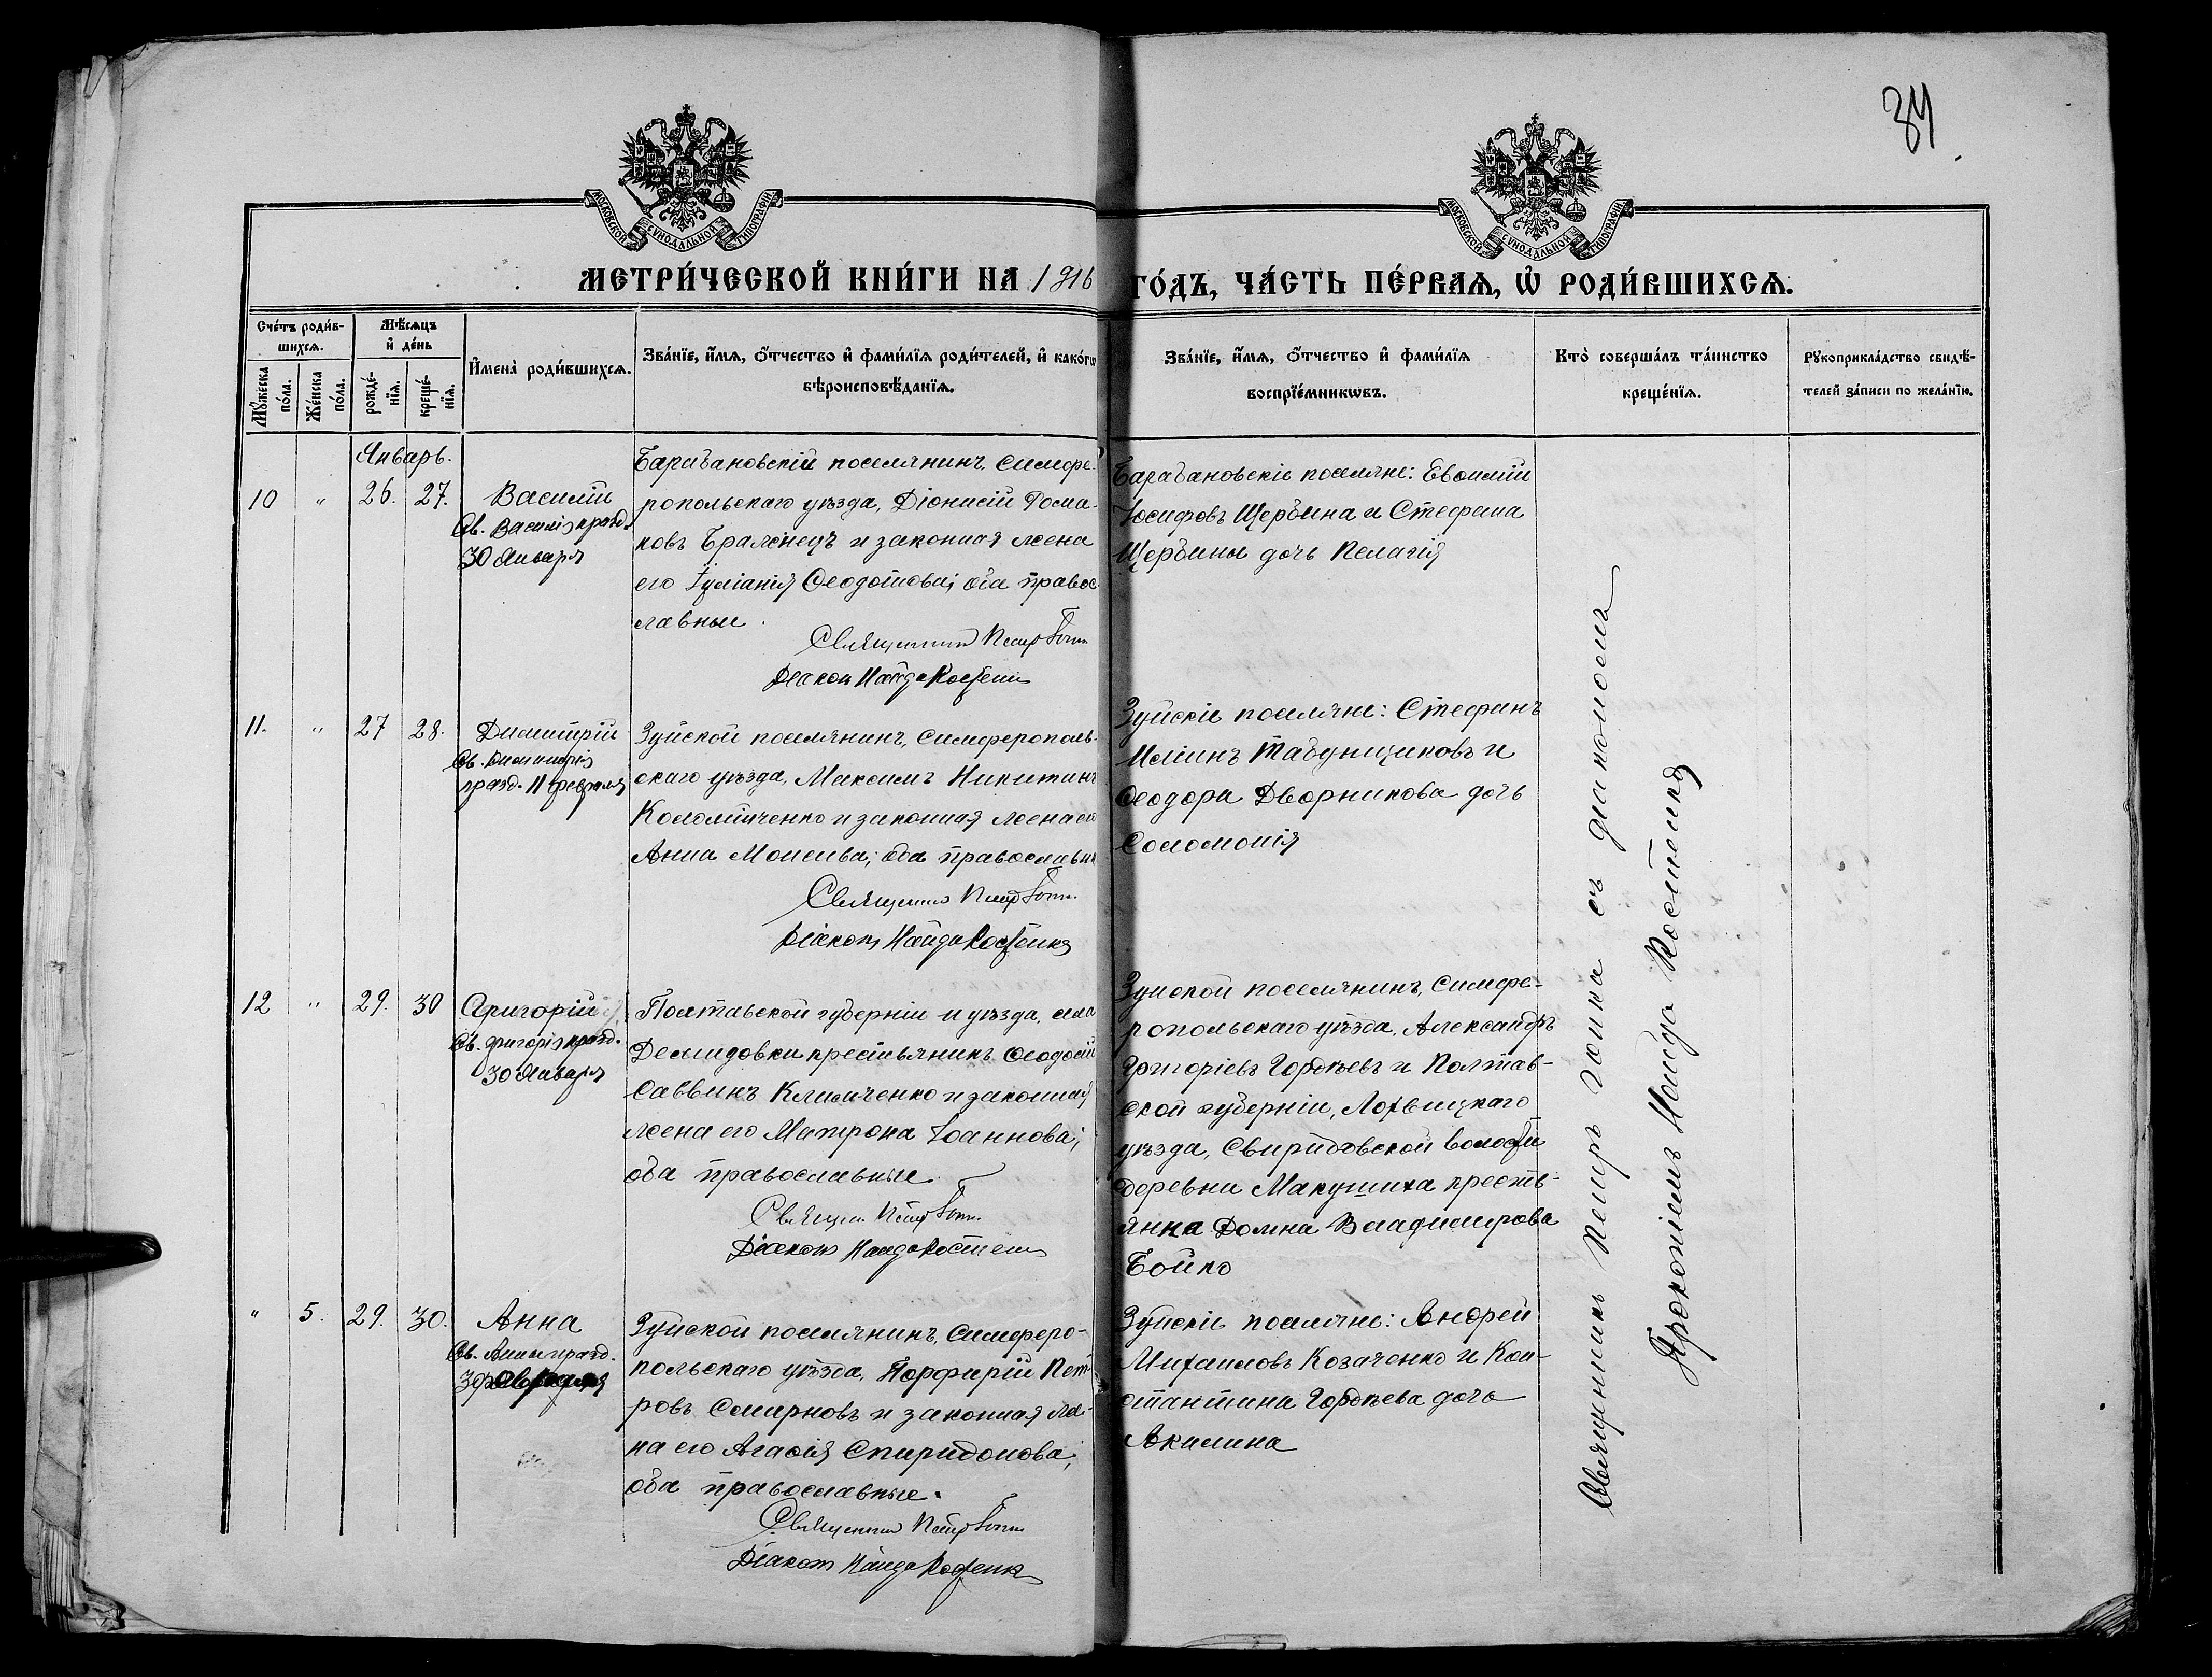 34
МОСКОВСКОЙ СѴНОДАЛЬНОЙ ТИПОГРАФІИ
МОСКОВСКОЙ СѴНОДАЛЬНОЙ ТИПОГРАФІИ
МЕТРИ́ЧЕСКОЙ КНИ́ГИ НА 1916 ГО́ДЪ, ЧА́СТЬ ПЕ́РВАѦ, Ѡ҆ РОДИ́ВШИХСѦ.
Сче́тъ роди́в-
шихсѧ.
Мꙋ́жеска по́ла.
Же́нска по́ла.
Мѣ́сѧцъ
и҆ де́нь
рожде́-
нїѧ.
креще́-
нїѧ.
И҆мена̀ роди́вшихсѧ.
Зва́нїе, и҆́мѧ, ѻ҆́тчество и҆ фами́лїѧ роди́телей, и҆ како́гѡ
вѣроисповѣ́данїѧ.
Зва́нїе, и҆́мѧ, ѻ҆́тчество и҆ фами́лїѧ
воспрїе́мникѡвъ.
Кто̀ соверша́лъ та́инство
креще́нїѧ.
Рꙋкоприкла́дство свидѣ́-
телей за́писи по жела́нїю.
Январь.
10 " 26. 27.
Василій
Св. Василія празд.
30 Января
Барабановскій поселянинъ, Симфе-
ропольскаго уѣзда, Діонисій Рома-
новъ Бражнецъ и законная жена
его Іуліанія Ѳеодотова; оба правос
лавные.
Священникъ Петръ
Діаконъ Найда Костенко
Барабановскіе поселяне: Евѳимій
Іосифовъ Щербина и Стефана
Щербины дочь Пелагія
11. " 27 28.
Димитрій
Св. Димитрія
празд. 11 февраля
Зуйской поселянинъ, Симферополь-
скаго уѣзда, Максимъ Никитинъ
Коломійченко и законная жена его
Анна Моисеева; оба православные
Священникъ Петръ
Діаконъ Найда Костенко
Зуйскіе поселяне: Стефанъ
Табунщиковъ и
Ѳеодора Дворникова дочь
Соломонія
12 " 29. 30
Григорій
Св. Григорія празд.
30 Января
Полтавской губерніи и уѣзда, села
Демидовки крестьянинъ Ѳеодосій
Саввинъ Климченко и законная
жена его Матрона Іоаннова;
оба православные
Священ. Петръ
Діаконъ Найда Костенко
Зуйской поселянинъ, Симфе-
ропольскаго уѣзда, Александръ
Григоріевъ Гордѣевъ и Полтав-
ской губерніи, Лохвицкаго
уѣзда, Свиридовской волости
деревни Макушиха кресть-
янка Домна Владимирова
Бойко
" 5. 29. 30.
Анна
Св. Анны празд.
3 февраля
Зуйской поселянинъ, Симферо-
польскаго уѣзда, Порфирій Пет-
ровъ Смирновъ и законная же-
на его Агаѳія Спиридонова;
оба православные.
Священникъ Петръ
Діаконъ Найда Костенко
Зуйскіе поселяне: Андрей
Михаиловъ Козаченко и Кон-
стантина Гордѣева дочь
Акилина
Священникъ Петръ съ діакономъ
Прокопіемъ Найда Костенко